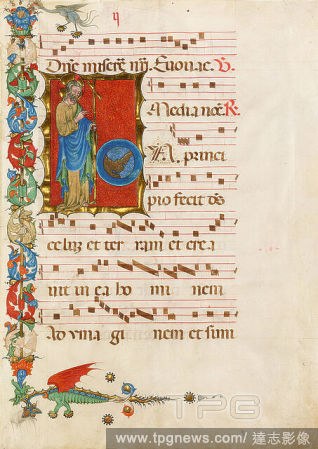 Dne miserē nr̄i Euouae. V.
Media noc̄. R.
A. princi
pio fecit ds̄
celuz et ter ram et crea
uit in ea ho mi nem
Ad yma gi nem et sim
TPG
www.tpgnews.com/達志影像